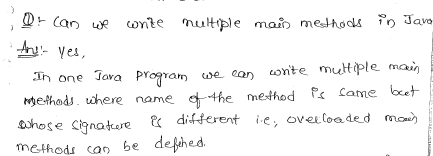 Q:- Can we write multiple main methods in Java
Ans:- Yes,
In one Java program we can write multiple main
methods. where name of the method is same but
whose signature is different i.e, overloaded main
methods can be defined.